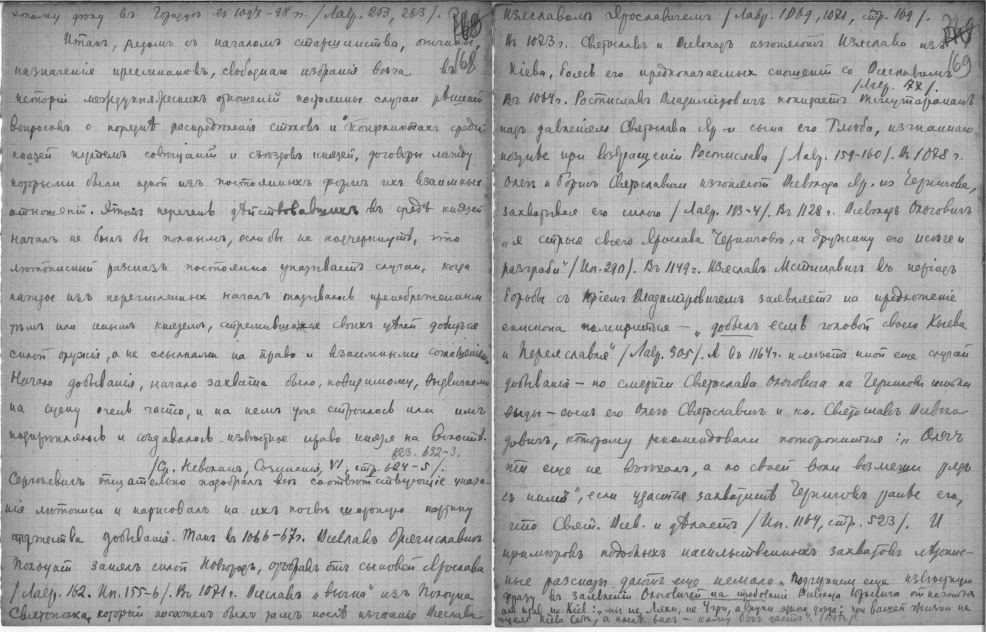 фразу въ Городцѣ въ 1097-98 гг. /Лавр. 253, 263/.
168
Итакъ, рядомъ съ началомъ старшинства, отчины,
назначенія преемниковъ, свободнаго избранія вѣча въ
исторіи междукняжескихъ отношеній постоянны случаи рѣшенія
вопросовъ о порядкѣ распредѣленія столовъ и о конфликтахъ среди
князей путемъ совѣщаній и съѣздовъ князей, договоры между
которыми были одной изъ постоянныхъ формъ ихъ взаимныхъ
отношеній. Этотъ перечень дѣйствовавшихъ въ средѣ князей
началъ не былъ бы полнымъ, если бы не подчеркнуть, что
лѣтописный разсказъ постоянно указываетъ случаи, когда
каждое изъ перечисленныхъ началъ оказывалось пренебреженнымъ
тѣмъ или инымъ княземъ, стремившимся своихъ цѣлей добиться
силой оружія, а не ссылками на право и взаимными соглашеніями.
Начало добыванія, начало захвата было, повидимому, выдвигаемо
на сцену очень часто, и на немъ уже строилось или имъ
подкрѣплялось и создавалось извѣстное право князя на волость.
623. 632-3.
/Ср. Неволинъ, Сочиненія, VI, стр. 624-5/.
Сергѣевичъ тщательно подобралъ всѣ соотвѣтствующіе указа-
нія лѣтописи и нарисовалъ на ихъ почвѣ широкую картину
торжества добыванія. Такъ въ 1066-67 г. Всеславъ Брячиславичъ
Полоцкій занялъ силой Новгородъ, отобравъ отъ сыновей Ярослава
/Лавр. 162. Ип. 155-6/. Въ 1071 г. Всеславъ „выгна" изъ Полоцка
Святополка, который посаженъ былъ тамъ послѣ изгнанія Всеслава
Изяславомъ Ярославичемъ /Лавр. 1069, 1071, стр. 169/.
169
Въ 1073 г. Святославъ и Всеволодъ изгоняютъ Изяслава изъ
Кіева, боясь его предполагаемыхъ сношеній со Всеславомъ
/Лавр. 177/.
Въ 1064 г. Ростиславъ Владиміровичъ покидаетъ Тмутаракань
подъ давленіемъ Святослава Яр-ча и сына его Глѣба, изгнаннаго
позднѣе при возвращеніи Ростислава /Лавр. 159-160/. Въ 1078 г.
Олегъ и Борисъ Святославичи изгоняютъ Всеволода Яр. изъ Чернигова,
захватывая его силою /Лавр. 193-4/. Въ 1128 г. Всеволодъ Ольговичъ
„я стрыя своего Ярослава Черниговѣ, а дружину его исѣче и
разграби" /Ип. 290/. Въ 1149 г. Изяславъ Мстиславичъ въ періодъ
борьбы съ Юріемъ Владиміровичемъ заявляетъ на предложеніе
епископа помириться – „добылъ есмь головой своею Кыева
и Переяславля" /Лавр. 305/. А въ 1164 г. имѣетъ мѣсто еще случай
добыванія – по смерти Святослава Ольговича на Черниговъ имѣли
виды – сынъ его Олегъ Святославичъ и кн. Святославъ Всево-
довичъ, которому рекомендовали поторопиться: „Олегъ
ти еще не въѣхалъ, а по своей воли возмеши рядъ
съ нимъ", если удастся захватить Черниговъ ранѣе его,
что Свят. Всев. и дѣлаетъ /Ип. 1164, стр. 523/. И
примѣровъ подобныхъ насильственныхъ захватовъ лѣтопис-
ные разсказы даютъ еще немало. Подчеркнемъ еще извѣстную
фразу въ заявленіи Ольговичей на требованіе Всеволода Юрьевича отказаться
отъ правъ на Кіевъ: „мы не Ляхи, не Угри, а внуки одного дѣда: при вашей жизни не
ищемъ Кіева, а послѣ васъ – кому Богъ дастъ".